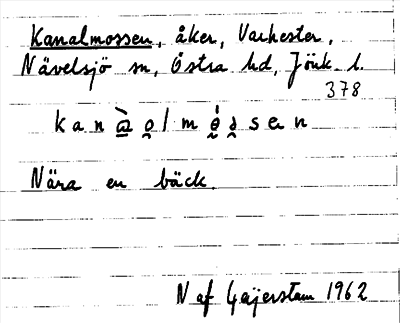 Kanalmossen, åker, Vackester,
Nävelsjö sn, Östra hd, Jönk. l.
378
Nära en bäck.
N af Geijerstam 1962